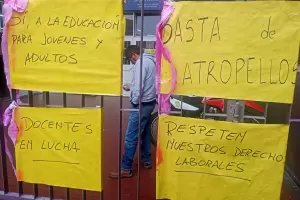 SI, A LA EDUCACIÓN
PARA JOVENES Y
ADULTOS
BASTA de
ATROPELLOS
DOCENTES
EN LUCHA
RESPETEN
NUESTROS DERECHO
LABORALES